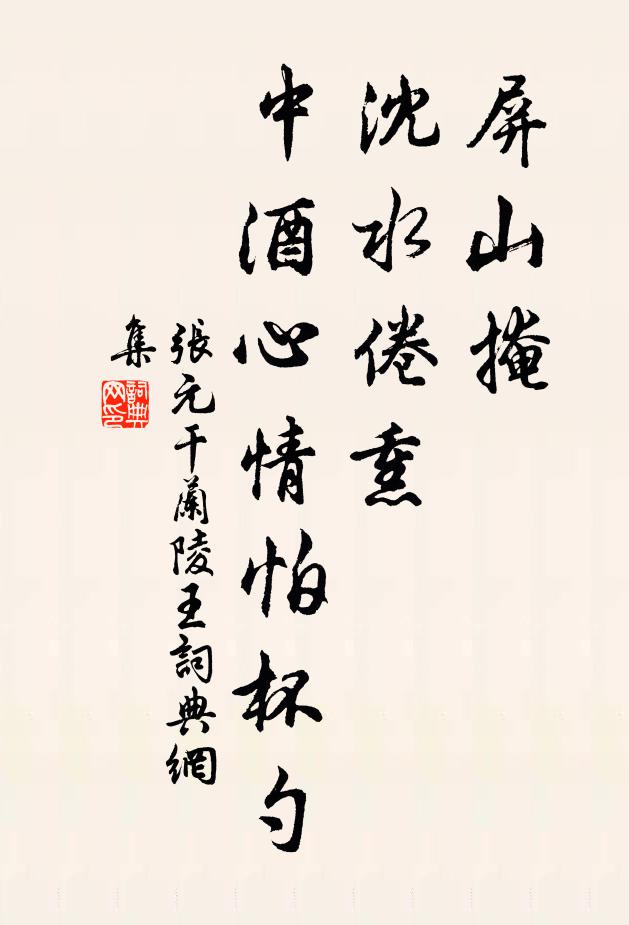 屏山掩
沈水倦熏
中酒心情怕杯勺
張元干蘭陵王詞典網
集
詞典
网印